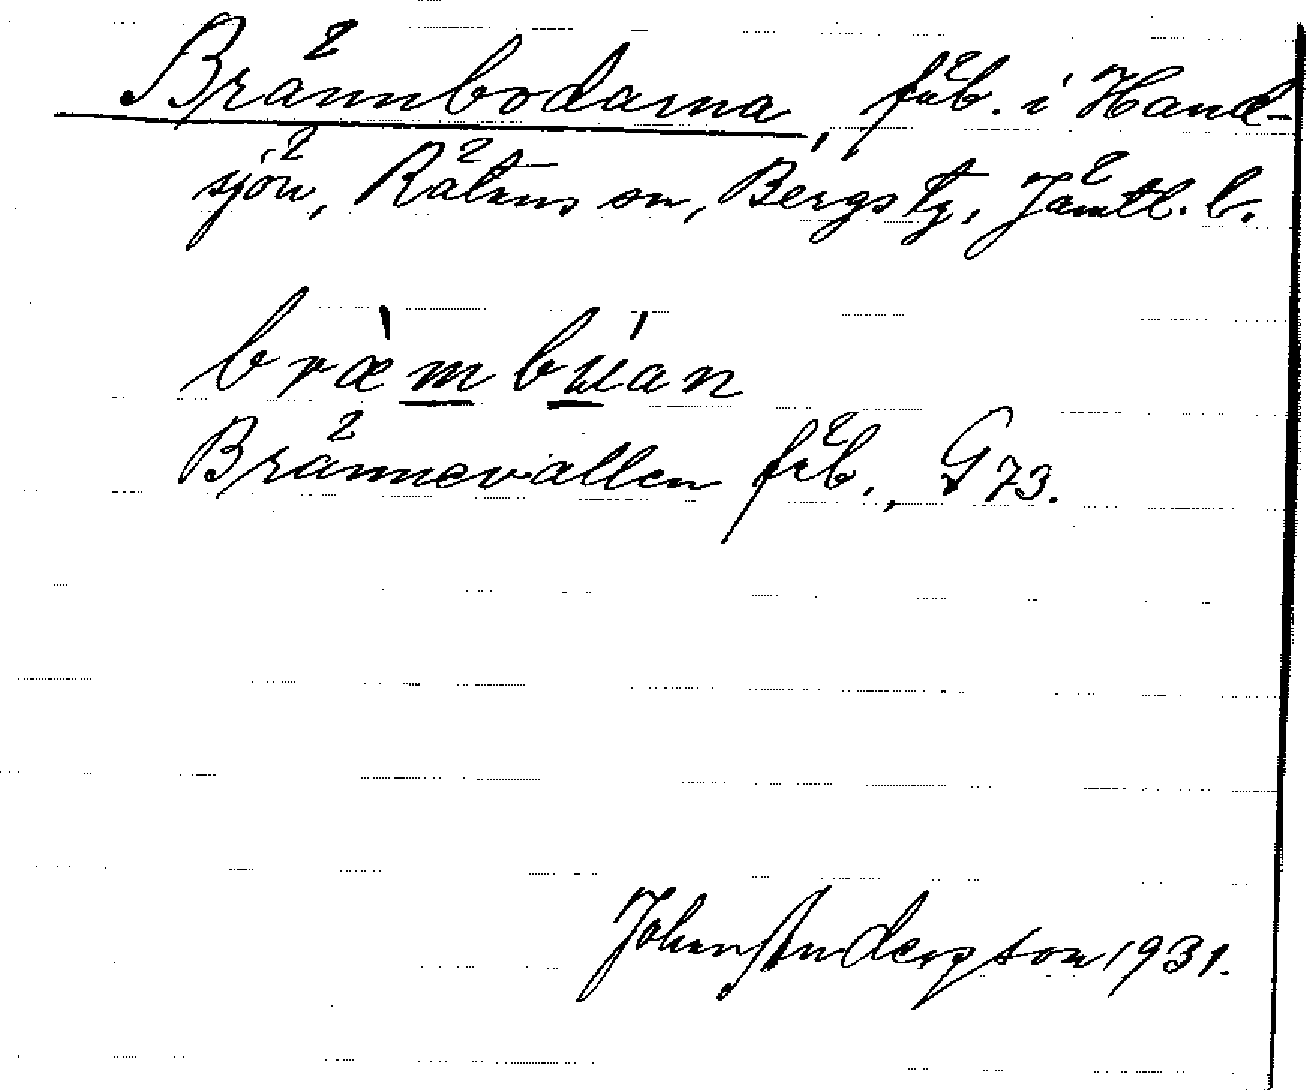 Brännbodarna, fäb. i Hand-
sjön, Rätans sn, Bergs tg, Jämtl. l.
bræ̀m búan
Brännevallen fäb., G 73.
John Anderson 1931.